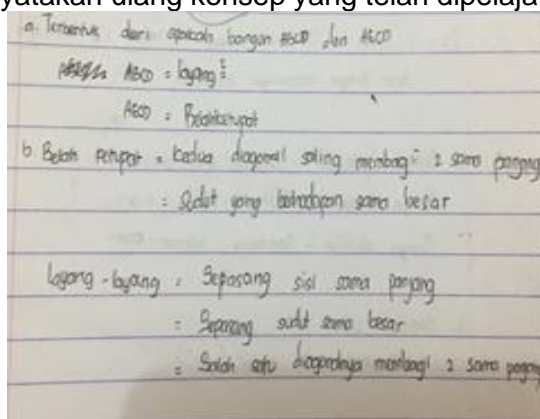 yatakan ulang konsep yang telah dipelaja
a. Terbentuk dari apakah bangun ABCD dan AECD
ABCD = layang²
AECD = Belahketupat
b. Belah ketupat = kedua diagonal saling membagi 2 sama panjang
= Sudut yang berhadapan sama besar
Layang-layang = Sepasang sisi sama panjang
= Sepasang sudut sama besar
= Salah satu diagonalnya membagi 2 sama panjang